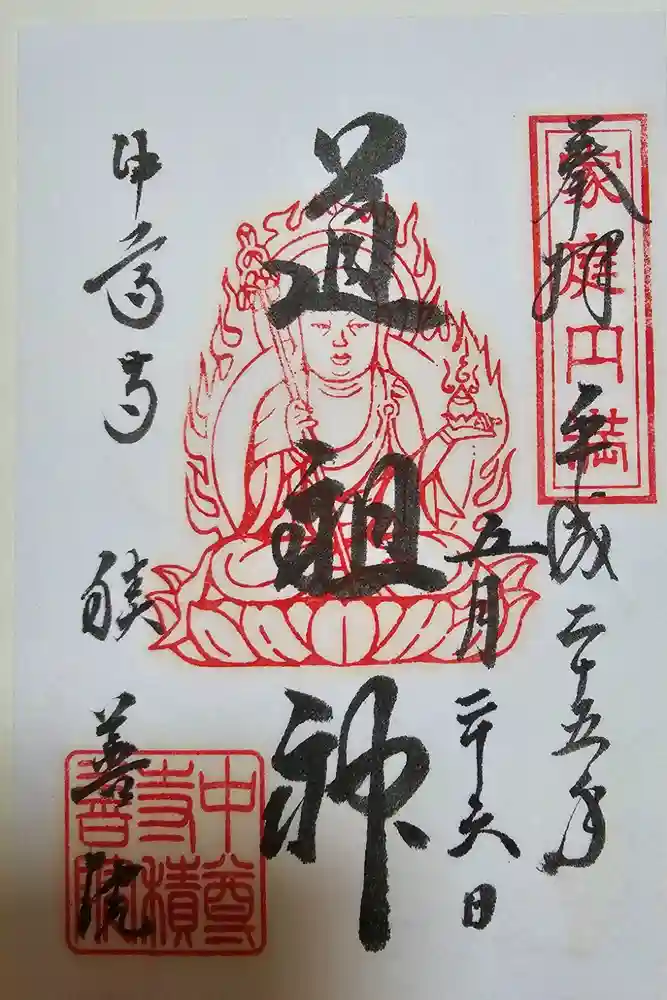 奉拝 平成二十五年
五月二十六日
家庭円満
道祖神
中尊寺 積善院
中尊寺積善院